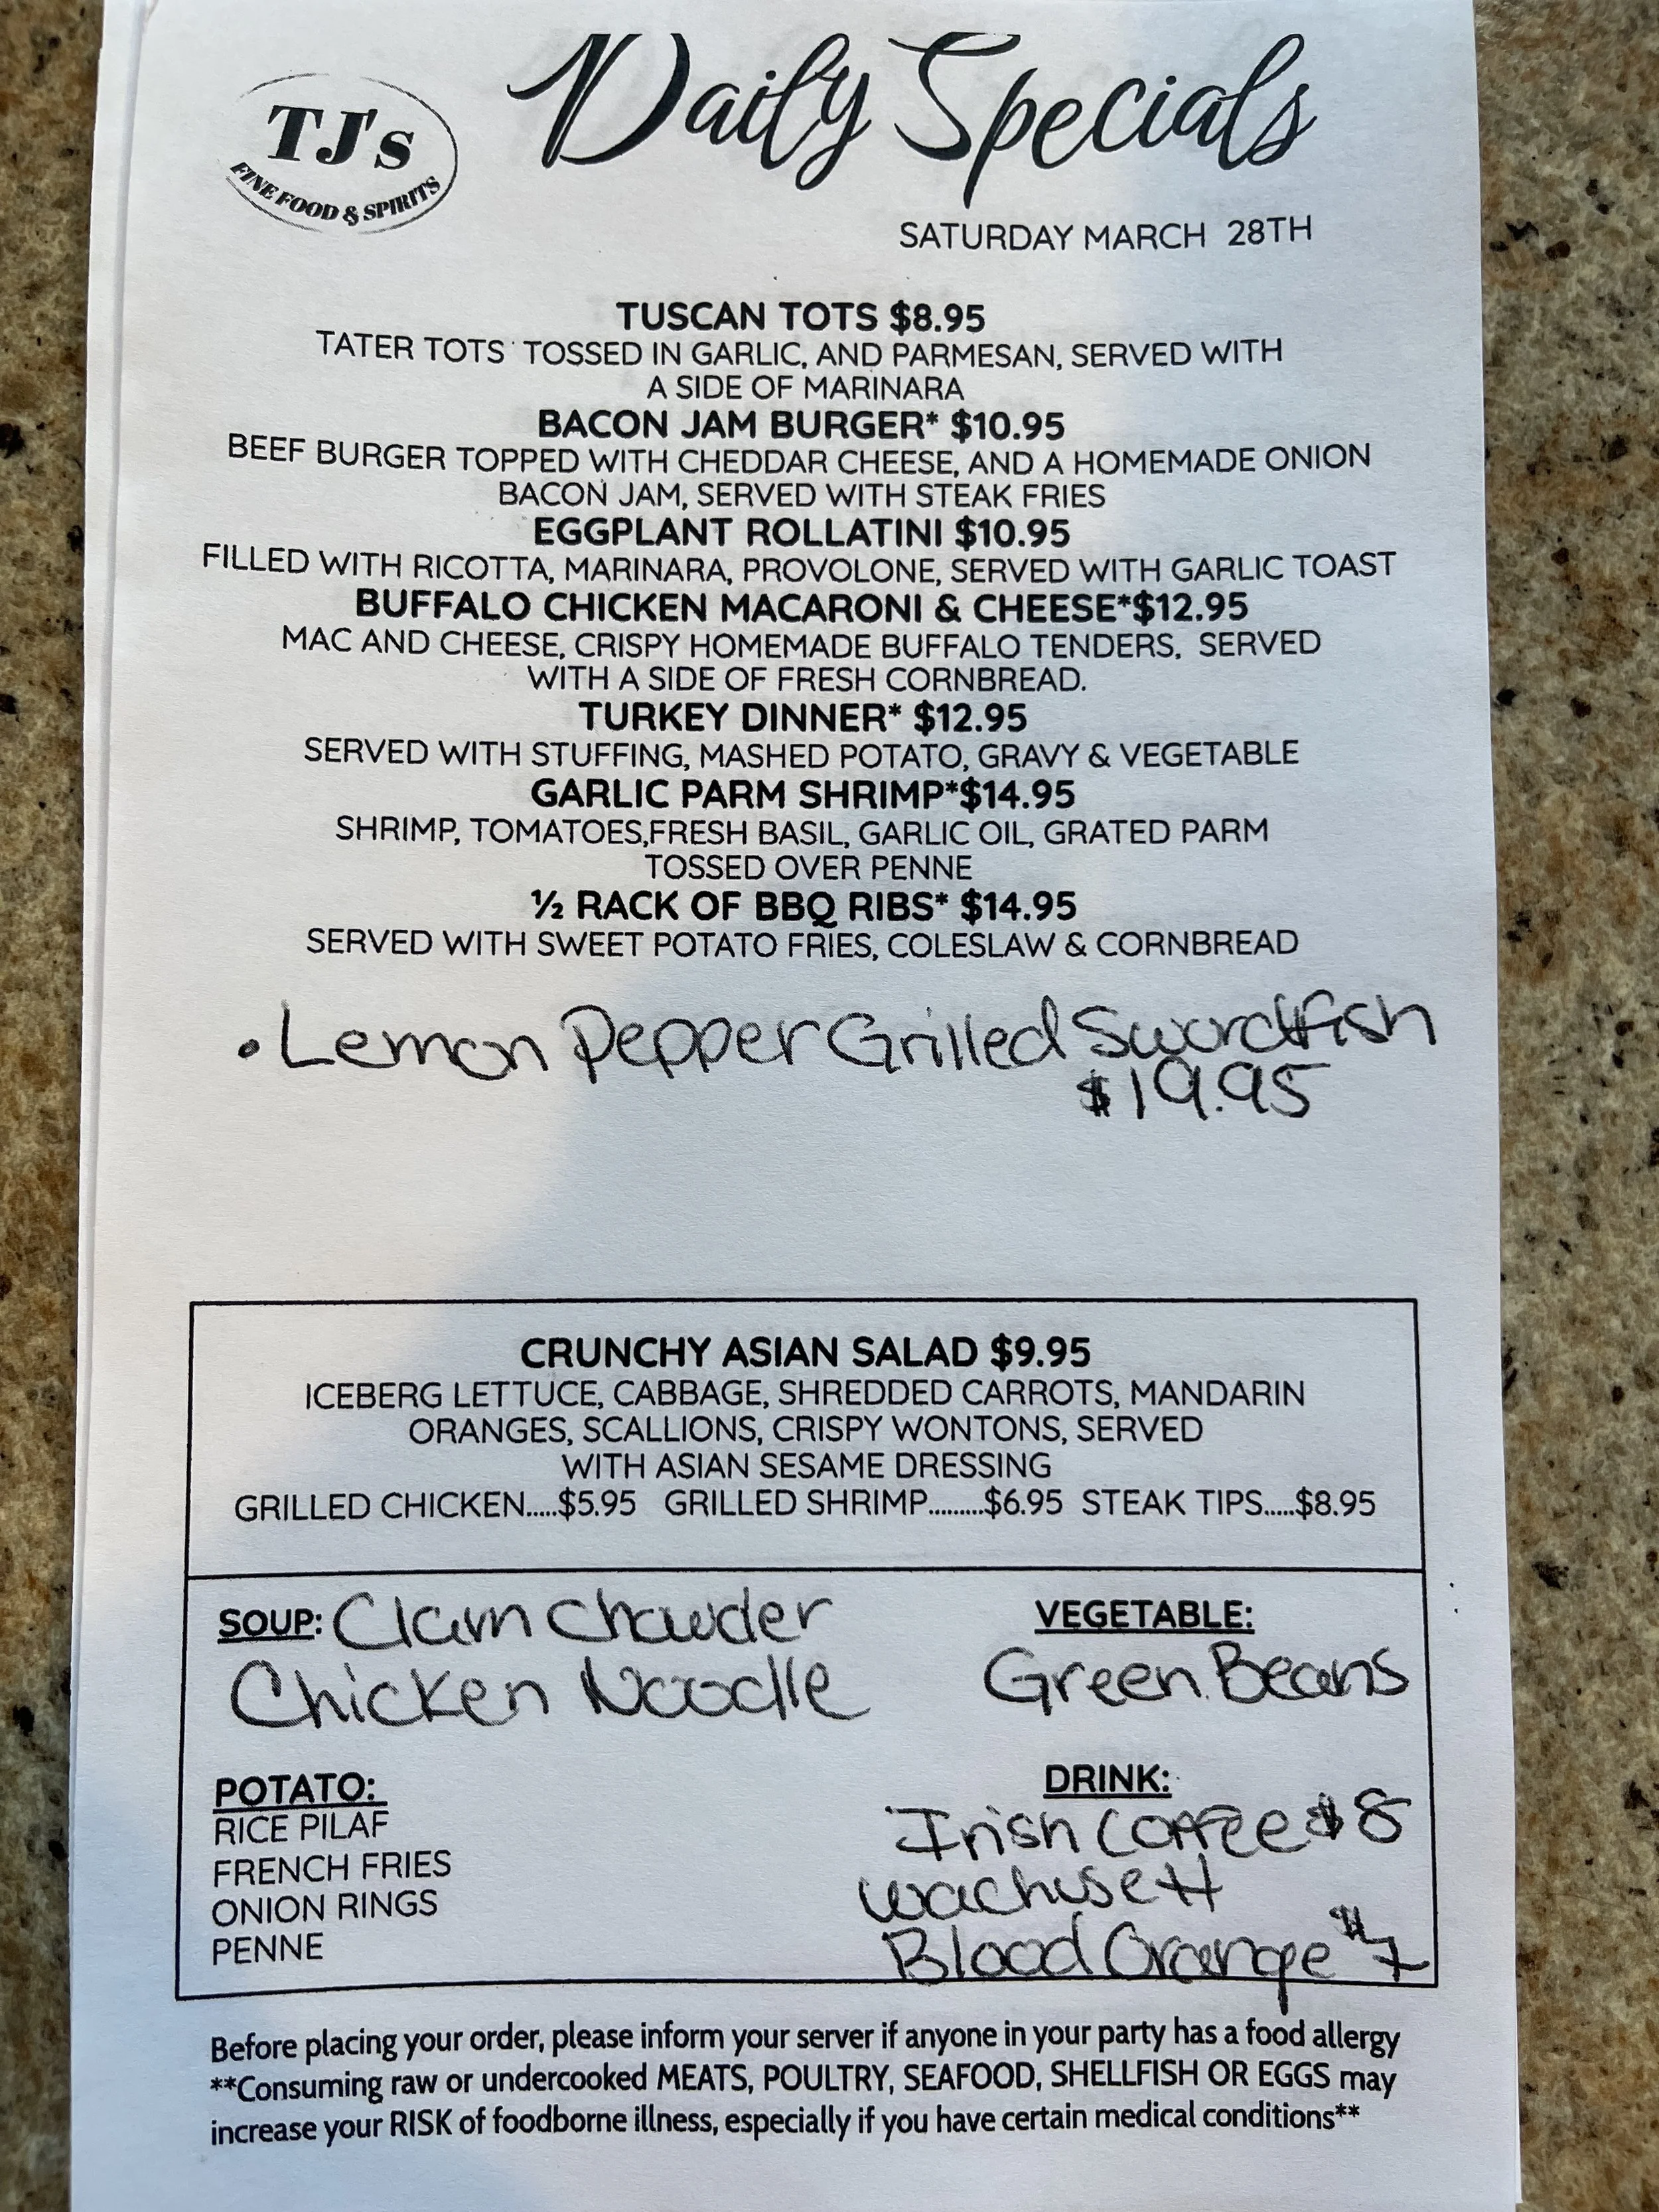 TJ's
FINE FOOD & SPIRITS
Daily Specials
SATURDAY MARCH 28TH
TUSCAN TOTS $8.95
TATER TOTS TOSSED IN GARLIC, AND PARMESAN, SERVED WITH
A SIDE OF MARINARA
BACON JAM BURGER* $10.95
BEEF BURGER TOPPED WITH CHEDDAR CHEESE, AND A HOMEMADE ONION
BACON JAM, SERVED WITH STEAK FRIES
EGGPLANT ROLLATINI $10.95
FILLED WITH RICOTTA, MARINARA, PROVOLONE, SERVED WITH GARLIC TOAST
BUFFALO CHICKEN MACARONI & CHEESE*$12.95
MAC AND CHEESE, CRISPY HOMEMADE BUFFALO TENDERS, SERVED
WITH A SIDE OF FRESH CORNBREAD.
TURKEY DINNER* $12.95
SERVED WITH STUFFING, MASHED POTATO, GRAVY & VEGETABLE
GARLIC PARM SHRIMP*$14.95
SHRIMP, TOMATOES,FRESH BASIL, GARLIC OIL, GRATED PARM
TOSSED OVER PENNE
½ RACK OF BBQ RIBS* $14.95
SERVED WITH SWEET POTATO FRIES, COLESLAW & CORNBREAD
• Lemon Pepper Grilled Swordfish
$19.95
CRUNCHY ASIAN SALAD $9.95
ICEBERG LETTUCE, CABBAGE, SHREDDED CARROTS, MANDARIN
ORANGES, SCALLIONS, CRISPY WONTONS, SERVED
WITH ASIAN SESAME DRESSING
GRILLED CHICKEN.....$5.95 GRILLED SHRIMP.........$6.95 STEAK TIPS.....$8.95
SOUP: Clam Chowder
Chicken Noodle
VEGETABLE:
Green Beans
POTATO:
RICE PILAF
FRENCH FRIES
ONION RINGS
PENNE
DRINK:
Irish Coffee $8
Wachusett
Blood Orange $7
Before placing your order, please inform your server if anyone in your party has a food allergy
**Consuming raw or undercooked MEATS, POULTRY, SEAFOOD, SHELLFISH OR EGGS may
increase your RISK of foodborne illness, especially if you have certain medical conditions**